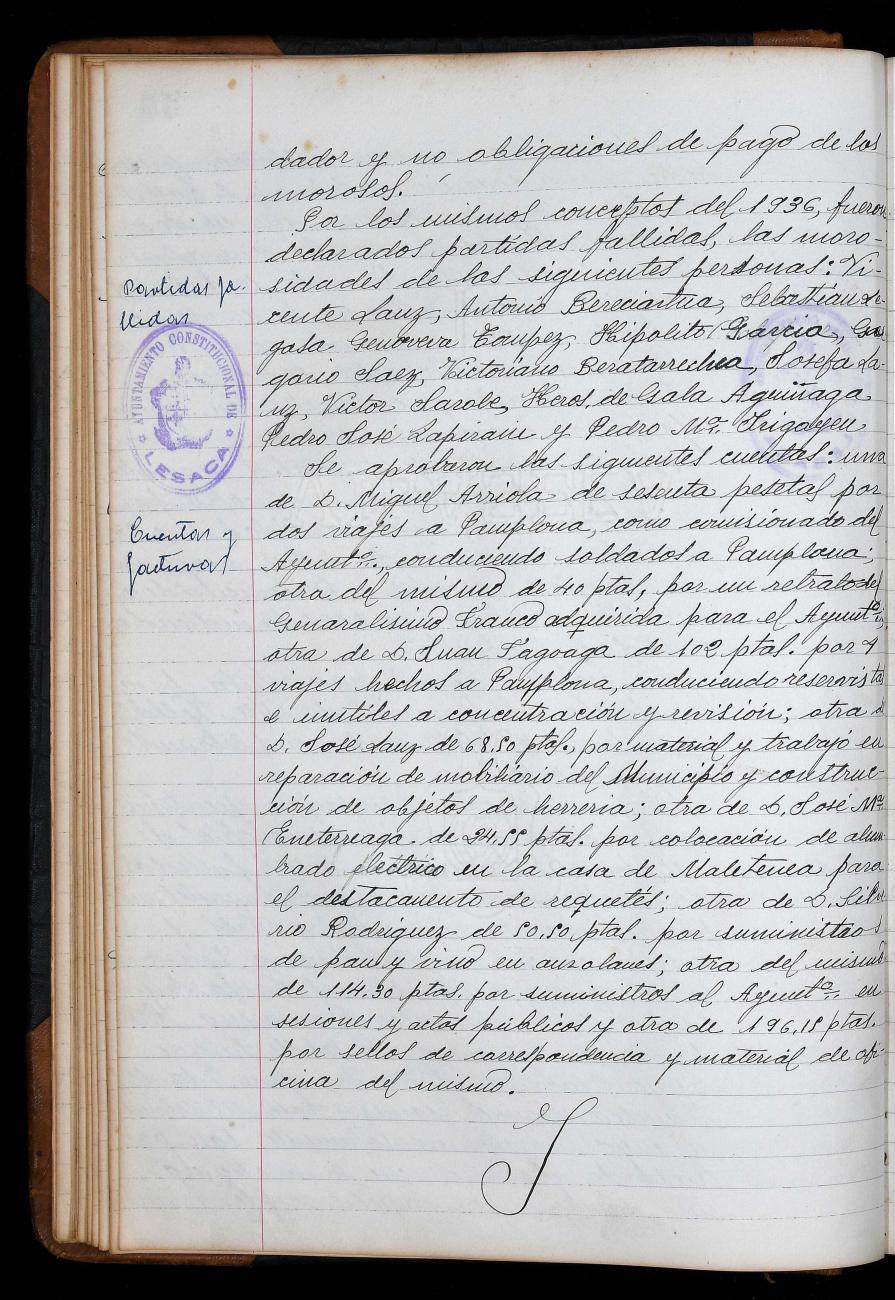 dador y no obligaciones de pago de los
morosos.
Por los mismos conceptos del 1936, fueron
declarados partidas fallidas, las moro-
sidades de las siguientes personas: Vi-
Partidas fa-
llidas
cente Lanz, Antonio Bereciartua, Sebastián
gasa Genoveva Compez, Hipólito Garcia,
gorio Saez, Victoriano Beratarrechea, Josefa La-
nz, Victor Sarobe, Heros. de Gala Aguiñaga
Pedro José Lapirain y Pedro Mª. Irigoyen
AYUNTAMIENTO CONSTITUCIONAL DE
LESACA
Se aprobaron las siguientes cuentas: una
de D. Miguel Arriola de sesenta pesetas por
Cuentas y
facturas
dos viajes a Pamplona, como comisionado del
Ayuntº., conduciendo soldados a Pamplona;
otra del mismo de 40 ptas, por un retrato del
Genaralisimo Franco adquirida para el Ayuntº.,
otra de D. Juan Fagoaga de 102 ptas. por 4
viajes hechos a Pamplona, conduciendo reservistas
e inutiles a concentración y revisión; otra d
D. José Lanz de 68,50 ptas., por material y trabajo en
reparación de mobiliario del Municipio y construc-
ción de objetos de herreria; otra de D. José Mª.
de 24,55 ptas. por colocación de alum-
brado eléctrico en la casa de Maletenea para
el destacamento de requetés; otra de D. Silve
rio Rodríguez de 50,50 ptas. por suministros
de pan y vino en auzolanes; otra del mismo
de 114,30 ptas. por suministros al Ayuntº. en
sesiones y actos públicos y otra de 196,15 ptas.
por sellos de correspondencia y material de ofi-
cina del mismo.